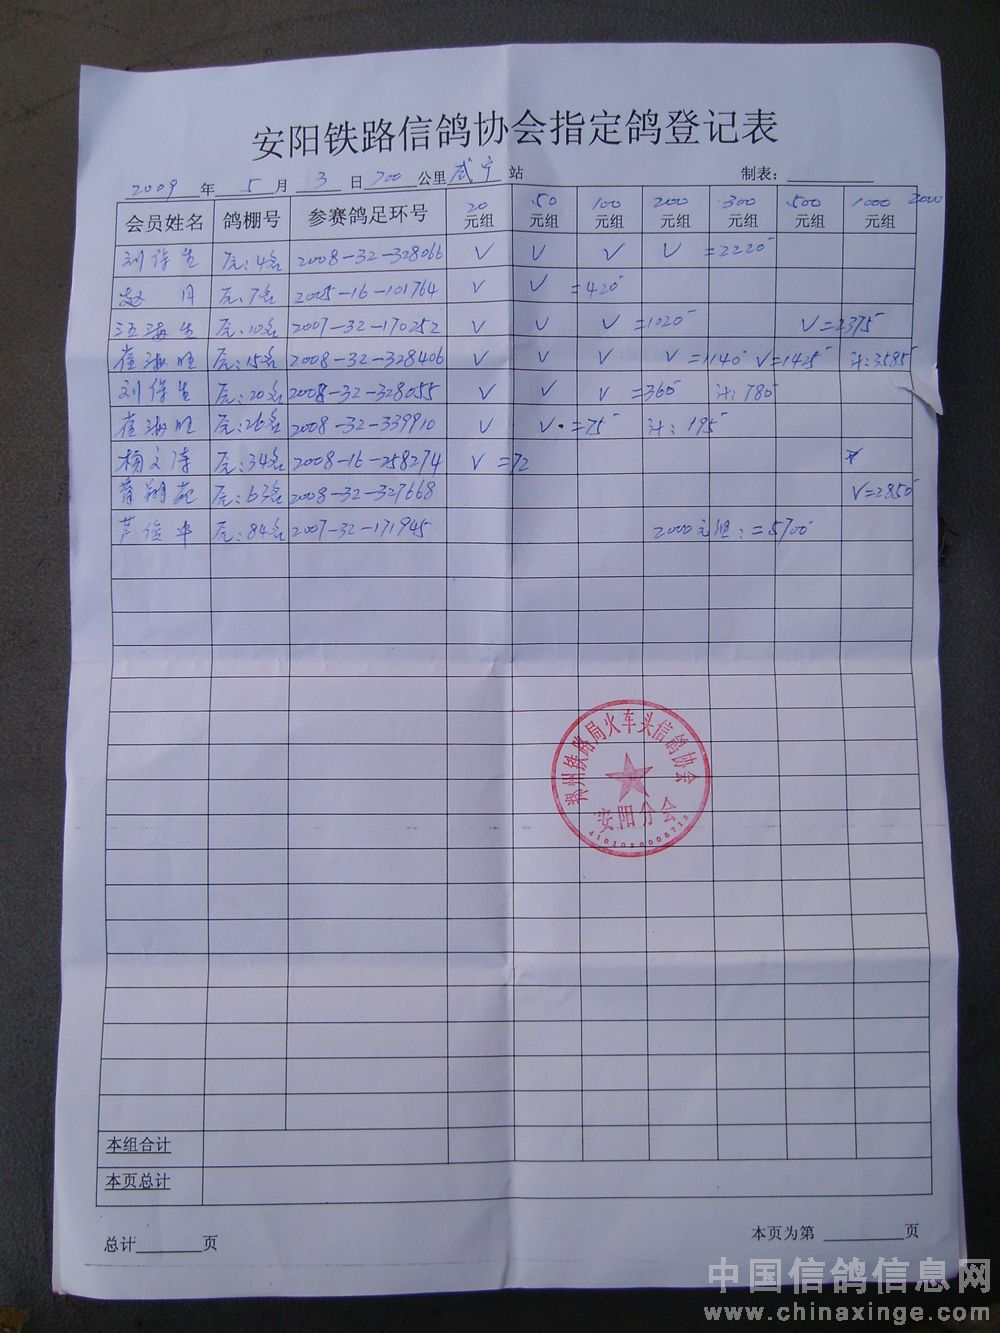 安阳铁路信鸽协会指定鸽登记表
2009 年 5 月 3 日 700 公里 咸宁 站 制表：
会员姓名 鸽棚号 参赛鸽足环号 20元组 50元组 100元组 200元组 300元组 500元组 1000元组 2000
刘保生 :4名 2008-32-328066 V V V V =2220
赵月 :7名 2005-16-101764 V V =420
海生 :10名 2007-32-170252 V V V =1020 V=2375
崔海旺 :15名 2008-32-328406 V V V V =1140 V=1425 计:3585
刘保生 :20名 2008-32-328055 V V V =360 计:780
崔海旺 :26名 2008-32-339910 V V =75 计:195
杨文涛 :34名 2008-16-258274 V =72
翔苑 :63名 2008-32-327668 V=2850
芦俊平 :84名 2007-32-171945 2000元组:=5700
郑州铁路局火车头信鸽协会
安阳分会
本组合计
本页总计
总计 页 本页为第 页
中国信鸽信息网
www.chinaxinge.com